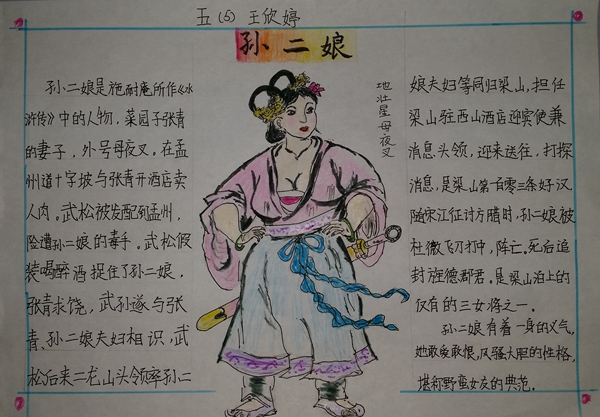 五(5) 王欣婷
孙二娘
孙二娘是施耐庵所作《水
浒传》中的人物,菜园子张青
的妻子,外号母夜叉。在孟
州道十字坡与张青开酒店卖
人肉。武松被发配到孟州,
险遭孙二娘的毒手。武松假
装喝醉酒捉住了孙二娘,
张青求饶,武松遂与张
青、孙二娘夫妇相识,武
松后来二龙山头领率孙二
地壮星母夜叉
娘夫妇等同归梁山,担任
梁山驻西山酒店迎宾使兼
消息头领,迎来送往,打探
消息,是梁山第一百零三条好汉,
随宋江征讨方腊时,孙二娘被
杜微飞刀打中,阵亡。死后追
封旌德郡君。是梁山泊上的
仅有的三女将之一。
孙二娘有着一身的义气,
她敢爱敢恨,风强大胆的性格,
堪称野蛮女友的典范。